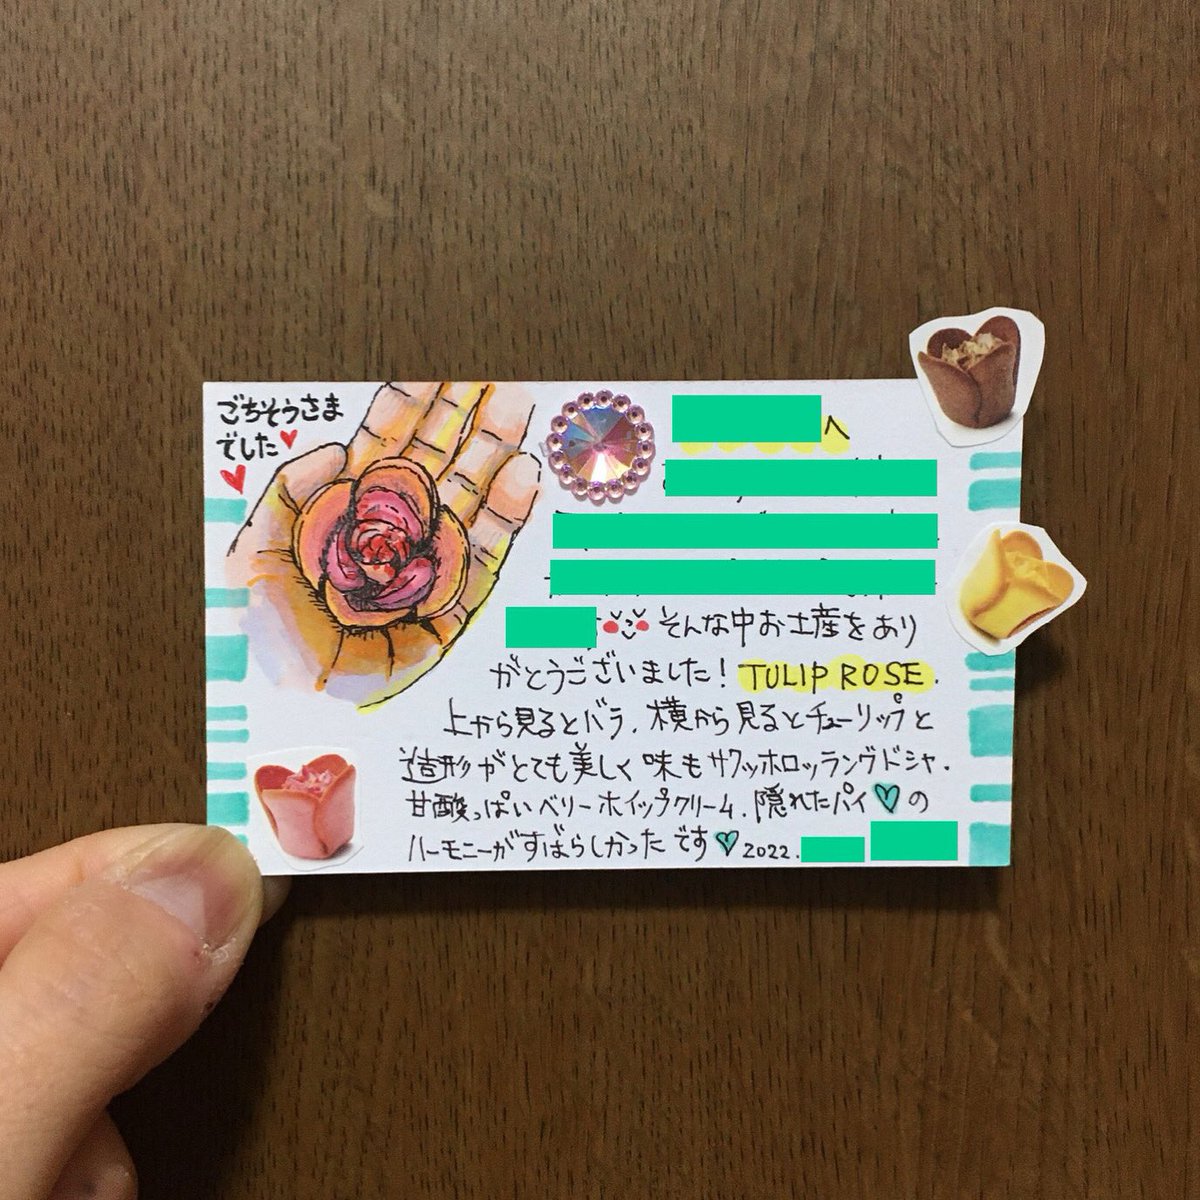 ごちそうさま
でした
へ
そんな中お土産をあり
がとうございました！TULIP ROSE.
上から見るとバラ、横から見るとチューリップと
造形がとても美しく味もサクッホロッラングドシャ、
甘酸っぱいベリーホイップクリーム、隠れたパイ♡の
ハーモニーがすばらしかったです♡2022.